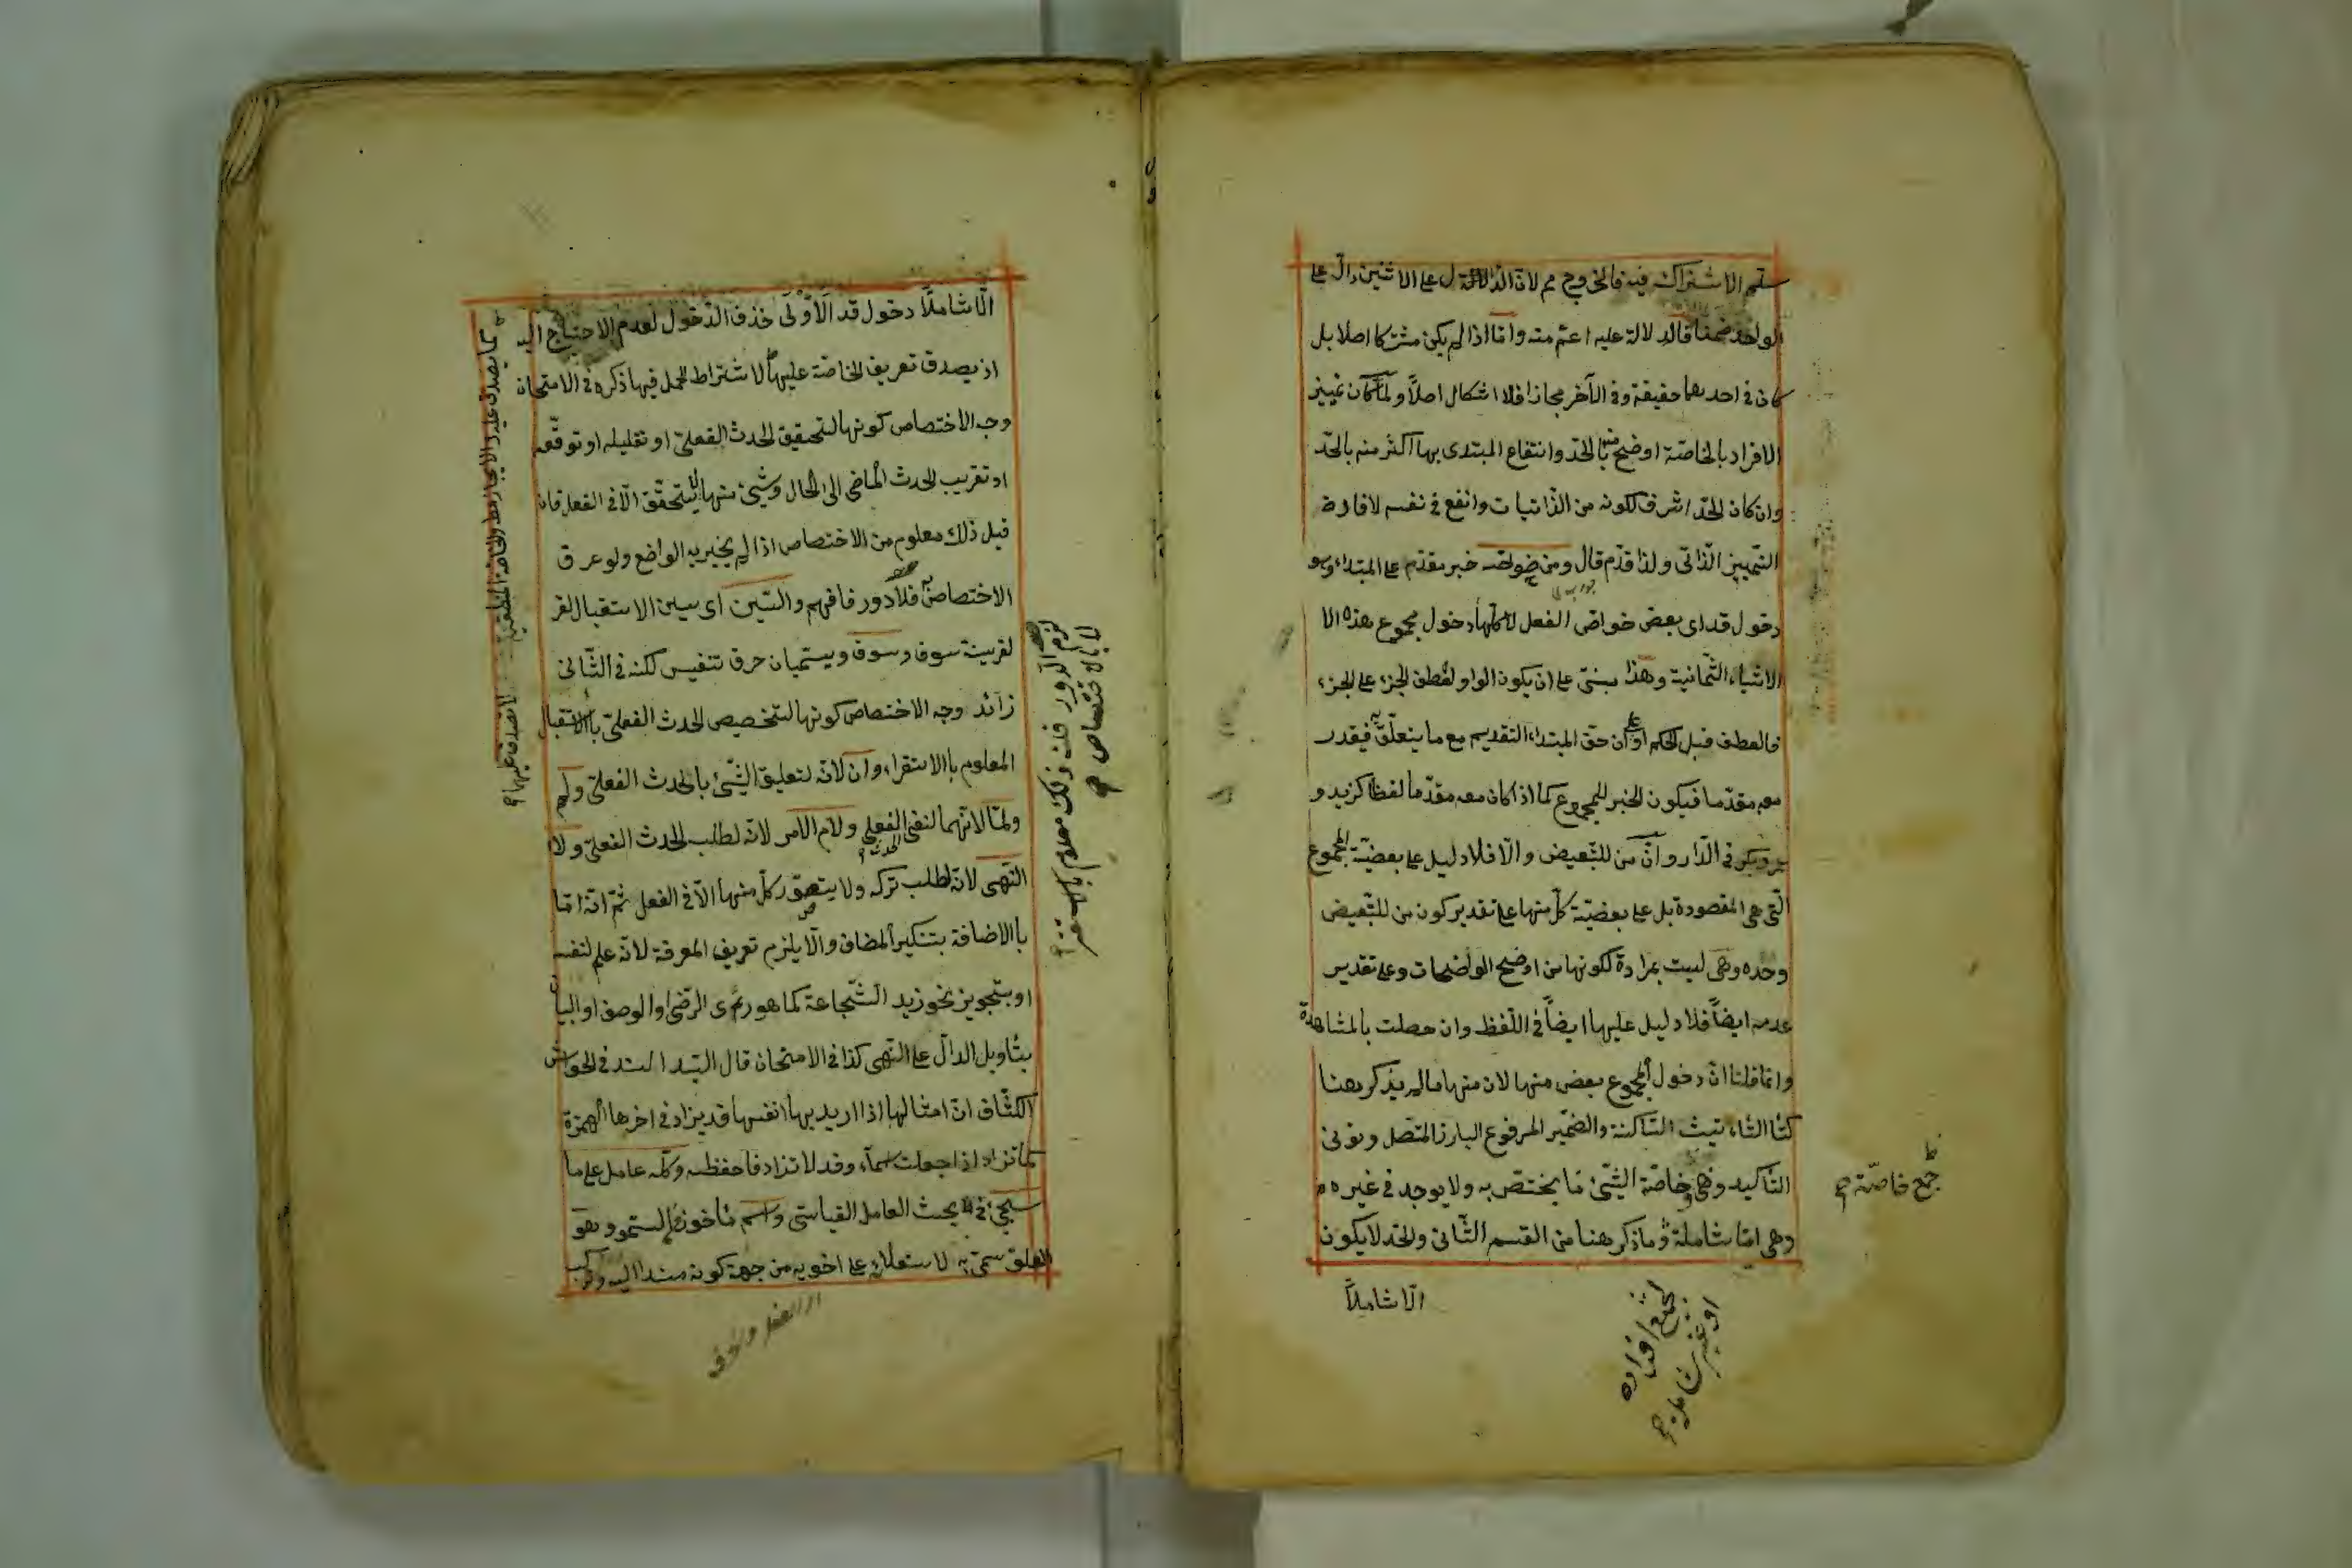 سلم الاشتراك فيه فالخروج مم لان الدال على الاثنين دال على
الواحد ضمنا فالدلالة عليه اعم منه واما اذا لم يكن مشتركا اصلا بل
كان في احدهما حقيقة وفي الآخر مجازا فلا اشكال اصلاً ولما كان تمييز
الافراد بالخاصة اوضح منه بالحد وانتفاع المبتدى بها اكثر منه بالحد
وان كان الحد اشرف لكونه من الذاتيات وانفع في نفسه لافادة
التمييز الذاتى ولذا قدم قال ومن خواصه خبر مقدم على المبتداء وهو
دخول قد اى بعض خواص الفعل لا كلها دخول مجموع هذه الا
الاشياء الثمانية وهذا مبنى على ان يكون الواو لعطف الجزء على الجزء
فالعطف قبل الحكم او على ان حق المبتداء التقديم مع ما يتعلق به فيقدر
معه مقدما فيكون الخبر للمجموع كما اذا كان معه مقدما لفظا كزيد و
عمرو وبكر في الدار وان من للتبعيض والا فلا دليل على بعضية المجموع
التى هى المقصودة بل على بعضية كل منها على تقدير كون من للتبعيض
وحده وهى ليست بمرادة لكونها من اوضح الواضحات وعلى تقدير
عدمه ايضاً فلا دليل عليها ايضاً في اللفظ وان حصلت بالمشاهدة
وانما قلنا ان دخول المجموع بعض منها لان منها ما لم يذكر هنا
كتا التاءنيث الساكنة والضمير المرفوع البارز المتصل ونونى
التاكيد وهى خاصة الشئ ما يختص به ولا يوجد في غيره
وهى اما شاملة وما ذكر هنا من القسم الثانى والحد لا يكون
الا شاملاً
جمع خاصة
لجميع افراده
او غير شاملة
الا شاملاً دخول قد الاولى حذف الدخول لعدم الاحتياج اليه
اذ يصدق تعريف الخاصة عليها لاشتراط الحمل فيها ذكره في الامتحان
وجه الاختصاص كونها لتحقيق الحدث الفعلى او تقليله او توقعه
او تقريب الحدث الماضى الى الحال وشئ منها لا يتحقق الا في الفعل فان
قيل ذلك معلوم من الاختصاص اذا لم يخبر به الواضع ولو عرف
الاختصاص فلا دور فافهم والسين اى سين الاستقبال لقر
لقرينة سوف وسوف ويسميان حرف تنفيس لكنه في الثانى
زائد وجه الاختصاص كونها لتخصيص الحدث الفعلى بالاستقبال
المعلوم بالاستقراء وان لانه لتعليق الشئ بالحدث الفعلى ولم
ولما لانهما لنفى الفعلى ولام الامر لانه لطلب الحدث الفعلى ولا
النهى لانه لطلب تركه ولا يتصور كل منها الا في الفعل ثم انه اما
بالاضافة بتنكير المضاف والا يلزم تعريف المعرفة لانه علم لنفسه
او بتجويز نحو زيد الشجاعة كما هو رأى الرضى او الوصف او البيان
بتأويل الدال على النهى كذا في الامتحان قال السيد السند في الحواشى
الكشاف ان امثالها اذا اريد بها انفسها قد يزاد في اخرها الهمزة
كما تزاد اذا جعلت اسماء وقد لا تزاد فاحفظه وكله عامل على ما
سيجئ في بحث العامل القياسى واسم مأخوذ من السمو وهو
العلو سمى به لاستعلائه على اخويه من جهة كونه مسندا اليه وتركب
لزم الدور قلت ذلك معلوم بالاستقرا
لا بالاختصاص
اى الفعل والحرف